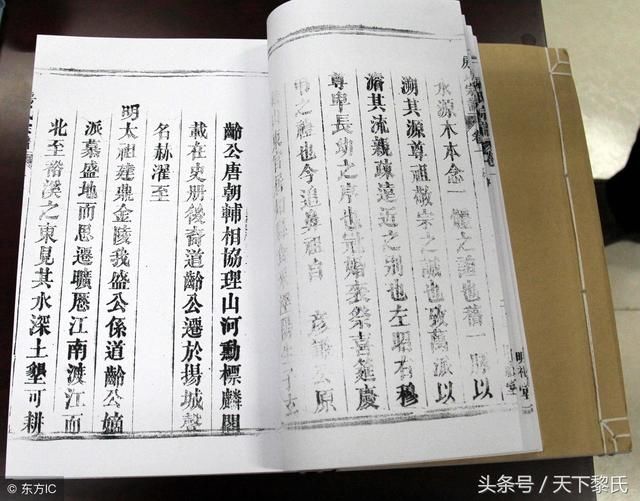 水源木本念一體之誼也藉一脈以
溯其源尊祖敬宗之誠也發萬派以
濟其流親疎遠近之別也左昭右穆
尊卑長幼之序也冠婚喪祭喜筵慶
弔之禮也今追鼻祖自彥
公原
齡公唐朝輔相協理山河勳標麟閣
載在史册後裔道齡公遷於揚城聲
名赫濯至
明太祖建鼎金陵我盛公係道齡公嫡
派慕盛地而思遷曠歷江南渡江而
北至裕溪之東見其水深土墾可耕
东方IC
头条号 / 天下黎氏